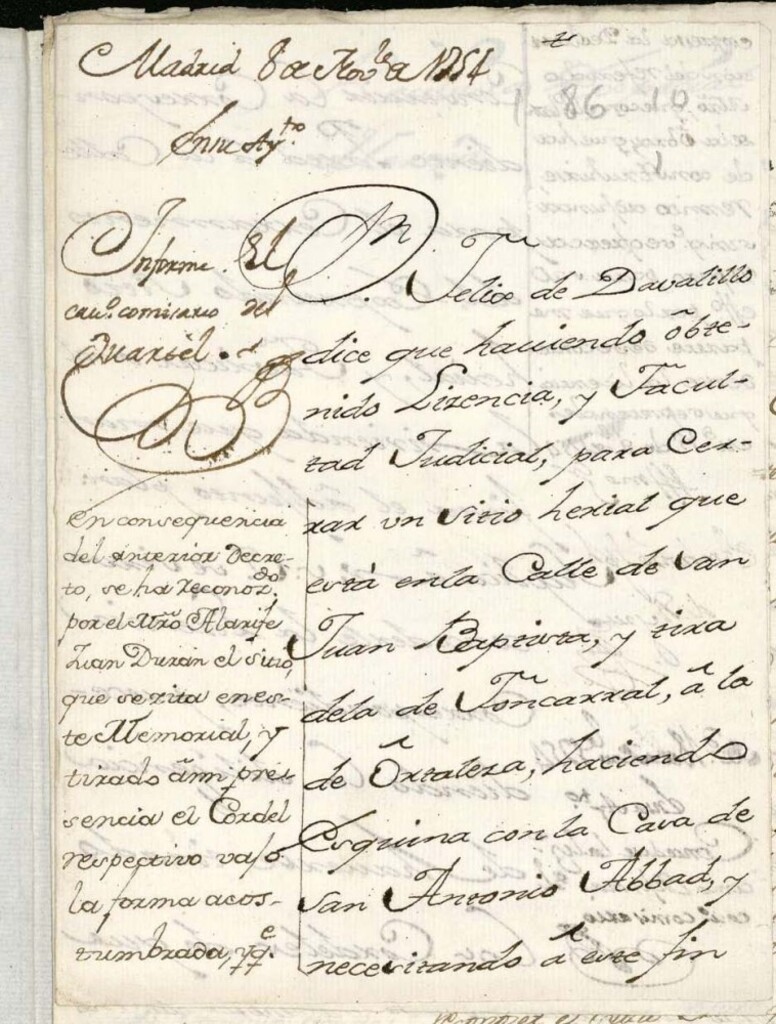 Madrid 8 de Nov.e de 1754
En su Ay.to
Informe El
cau.o comisario del
Quartél.
M.
Felix de Davalillo
dice que haviendo obte-
nido Lizencia, y Facul-
tad Judicial, para Cer-
rar vn sitio herial que
está en la Calle de San
Juan Baptista, y tira
dela de Foncarral, â la
de Ortaleza, haciendo
Esquina con la Casa de
San Antonio Abbad, y
necesitando â este fin
En consequencia
del anterior Decre-
to, se ha reconoz.do
por el Mro Alarife
Juan Durán el sitio,
que se zita en es-
te Memorial, y
tirado â mi pre-
sencia el Cordel
respectivo vajo
la forma acos-
tumbrada, y q.e